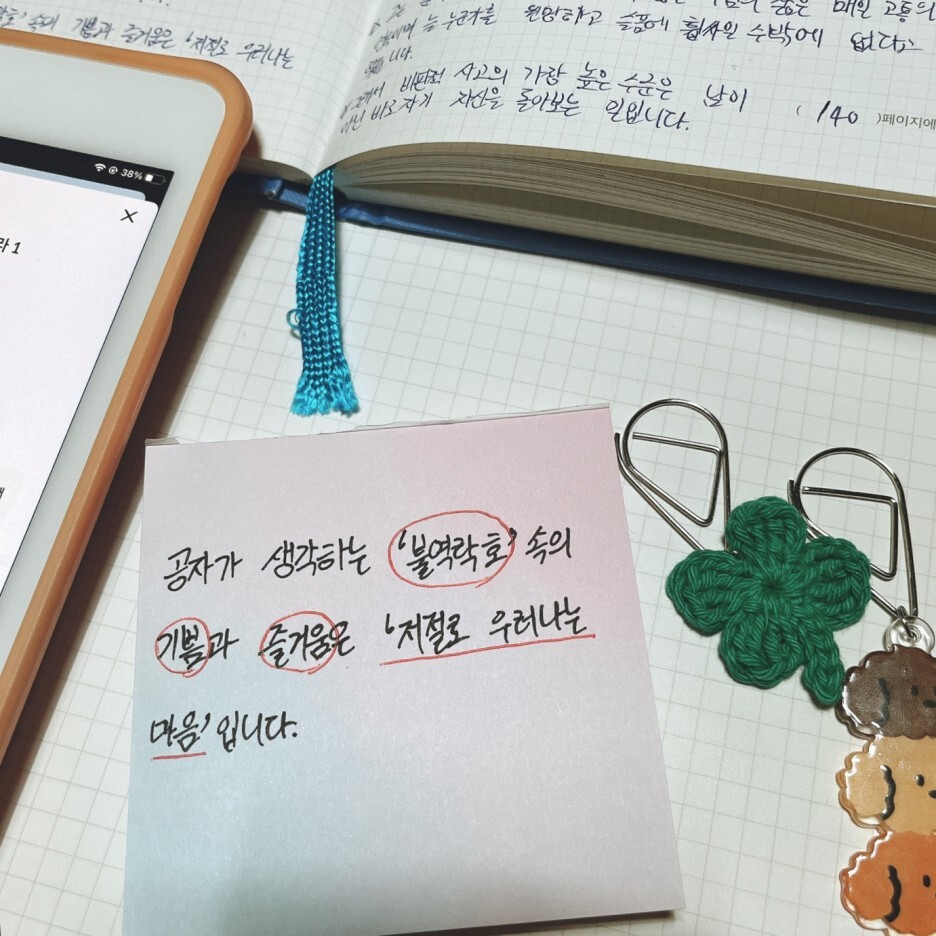 속의 기쁨과 즐거움은 '저절로 우러나는
매일 고통의
원망하고 슬픔에 휩싸일 수밖에 없다고
니다.
비판적 사고의 가장 높은 수준은 남이
아닌 바로 자기 자신을 돌아보는 일입니다.
( 140 )페이지에
38%
1
공자가 생각하는 '불역락호' 속의
기쁨과 즐거움은 '저절로 우러나는
마음' 입니다.